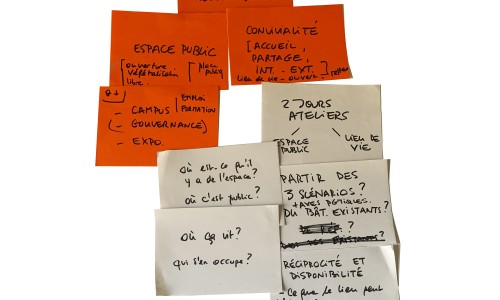 ESPACE PUBLIC
ouverture
végétalisation
libre.
place
public
CONVIVIALITÉ
[ACCUEIL,
PARTAGE,
INT. - EXT.
lien de vie - ouvert.
- CAMPUS
EMPLOI
FORMATION
(- GOUVERNANCE)
- EXPO.
2 JOURS
ATELIERS
ESPACE
PUBLIC
LIEU DE
VIE
où est-ce qu'il
y a de l'espace?
où c'est public?
PARTIR DES
3 SCÉNARIOS?
DU BÂT. EXISTANTS?
où ça vit?
qui s'en occupe?
RÉCIPROCITÉ ET
DISPONIBILITÉ
- Ce que le lieu peut